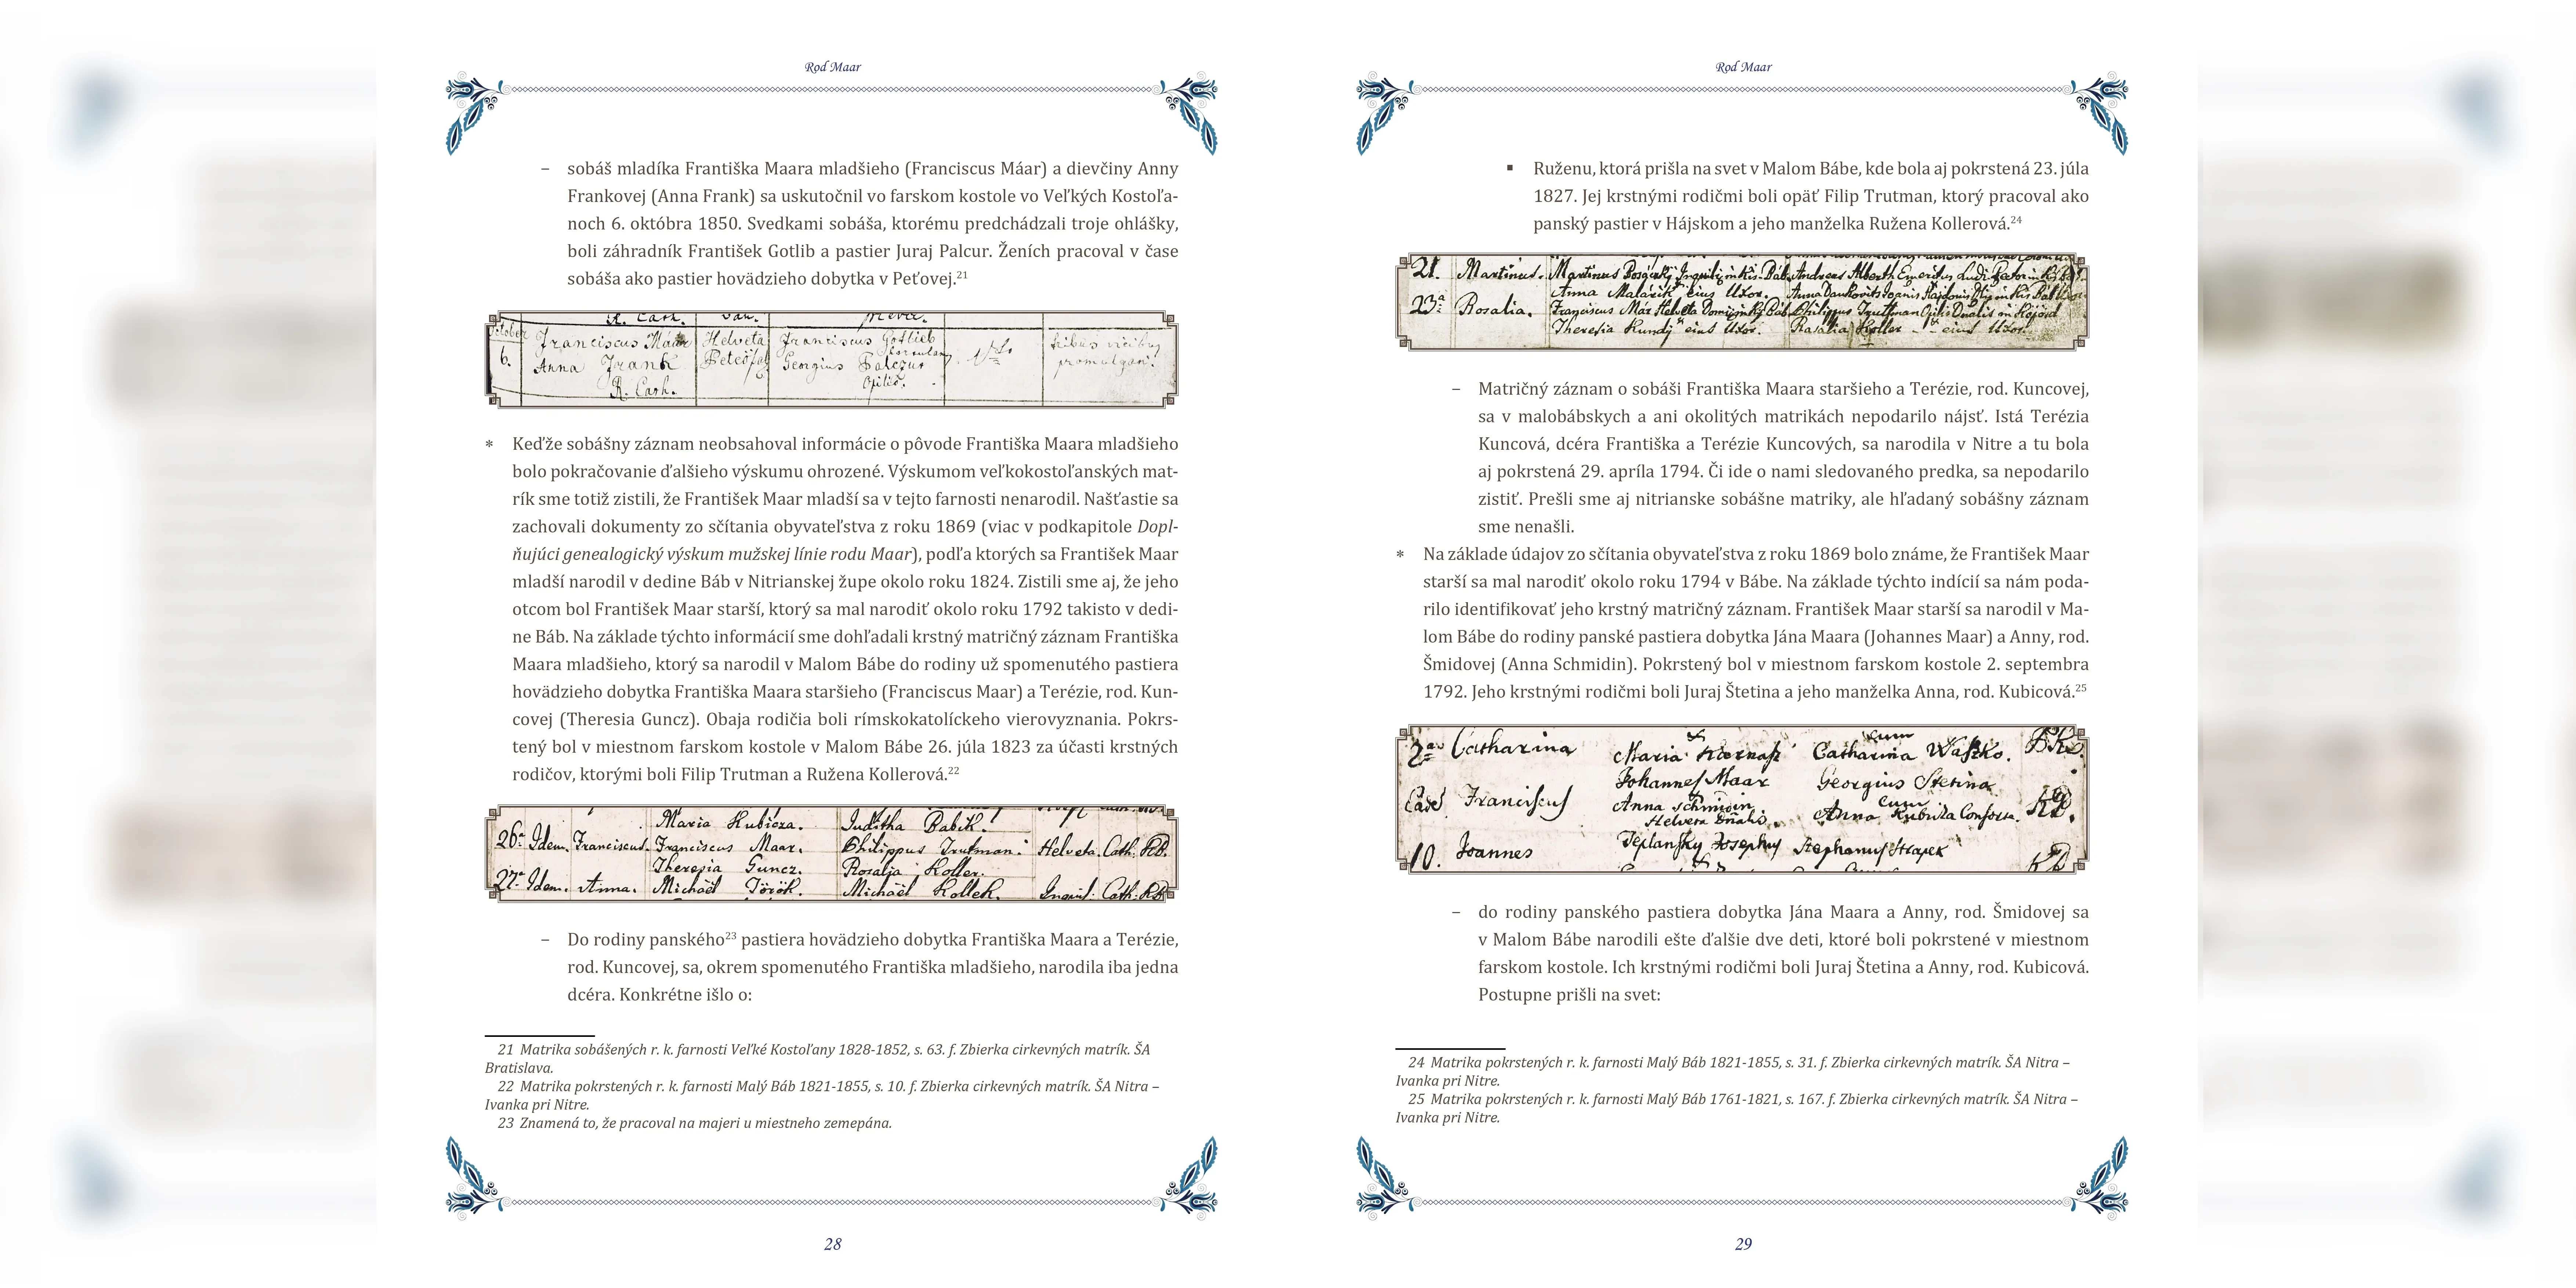 Rod Maar
– sobáš mladíka Františka Maara mladšieho (Franciscus Máar) a dievčiny Anny
Frankovej (Anna Frank) sa uskutočnil vo farskom kostole vo Veľkých Kostoľa-
noch 6. októbra 1850. Svedkami sobáša, ktorému predchádzali troje ohlášky,
boli záhradník František Gotlib a pastier Juraj Palcur. Ženích pracoval v čase
sobáša ako pastier hovädzieho dobytka v Peťovej.21
R. Cath.
October
6. Franciscus Maar Helveta Franciscus Gottlieb
Anna Frank Georgius
R. Cath.
* Keďže sobášny záznam neobsahoval informácie o pôvode Františka Maara mladšieho
bolo pokračovanie ďalšieho výskumu ohrozené. Výskumom veľkokostoľanských mat-
rík sme totiž zistili, že František Maar mladší sa v tejto farnosti nenarodil. Našťastie sa
zachovali dokumenty zo sčítania obyvateľstva z roku 1869 (viac v podkapitole Dopl-
ňujúci genealogický výskum mužskej línie rodu Maar), podľa ktorých sa František Maar
mladší narodil v dedine Báb v Nitrianskej župe okolo roku 1824. Zistili sme aj, že jeho
otcom bol František Maar starší, ktorý sa mal narodiť okolo roku 1792 takisto v dedi-
ne Báb. Na základe týchto informácií sme dohľadali krstný matričný záznam Františka
Maara mladšieho, ktorý sa narodil v Malom Bábe do rodiny už spomenutého pastiera
hovädzieho dobytka Františka Maara staršieho (Franciscus Maar) a Terézie, rod. Kun-
covej (Theresia Guncz). Obaja rodičia boli rímskokatolíckeho vierovyznania. Pokrs-
tený bol v miestnom farskom kostole v Malom Bábe 26. júla 1823 za účasti krstných
rodičov, ktorými boli Filip Trutman a Ružena Kollerová.22
Maria Kubicza. Juditha Babik.
26a Idem. Franciscus. Franciscus Maar. Philippus Trutman. Helveta. Cath. RB.
Theresia Guncz. Rosalja Koller.
27a Idem. Anna. Michaël Török. Michaël Kollek. Inquil. Cath. RB
– Do rodiny panského23 pastiera hovädzieho dobytka Františka Maara a Terézie,
rod. Kuncovej, sa, okrem spomenutého Františka mladšieho, narodila iba jedna
dcéra. Konkrétne išlo o:
21 Matrika sobášených r. k. farnosti Veľké Kostoľany 1828-1852, s. 63. f. Zbierka cirkevných matrík. ŠA
Bratislava.
22 Matrika pokrstených r. k. farnosti Malý Báb 1821-1855, s. 10. f. Zbierka cirkevných matrík. ŠA Nitra –
Ivanka pri Nitre.
23 Znamená to, že pracoval na majeri u miestneho zemepána.
28
Rod Maar
▪ Ruženu, ktorá prišla na svet v Malom Bábe, kde bola aj pokrstená 23. júla
1827. Jej krstnými rodičmi boli opäť Filip Trutman, ktorý pracoval ako
panský pastier v Hájskom a jeho manželka Ružena Kollerová.24
21. Martinus. Martinus
Anna Malárik eius Uxor.
23a Rosalia. Franciscus Már Helveta Philippus Trutman
Theresia Kundj eius Uxor. Rosalia Koller eius Uxor.
– Matričný záznam o sobáši Františka Maara staršieho a Terézie, rod. Kuncovej,
sa v malobábskych a ani okolitých matrikách nepodarilo nájsť. Istá Terézia
Kuncová, dcéra Františka a Terézie Kuncových, sa narodila v Nitre a tu bola
aj pokrstená 29. apríla 1794. Či ide o nami sledovaného predka, sa nepodarilo
zistiť. Prešli sme aj nitrianske sobášne matriky, ale hľadaný sobášny záznam
sme nenašli.
* Na základe údajov zo sčítania obyvateľstva z roku 1869 bolo známe, že František Maar
starší sa mal narodiť okolo roku 1794 v Bábe. Na základe týchto indícií sa nám poda-
rilo identifikovať jeho krstný matričný záznam. František Maar starší sa narodil v Ma-
lom Bábe do rodiny panské pastiera dobytka Jána Maara (Johannes Maar) a Anny, rod.
Šmidovej (Anna Schmidin). Pokrstený bol v miestnom farskom kostole 2. septembra
1792. Jeho krstnými rodičmi boli Juraj Štetina a jeho manželka Anna, rod. Kubicová.25
2a Catharina Maria Catharina
Johannes Maar Georgius Stetina
Franciscus Anna Schmidin cum
Helveta Anna
10. Joannes Josephus Stephanus
– do rodiny panského pastiera dobytka Jána Maara a Anny, rod. Šmidovej sa
v Malom Bábe narodili ešte ďalšie dve deti, ktoré boli pokrstené v miestnom
farskom kostole. Ich krstnými rodičmi boli Juraj Štetina a Anny, rod. Kubicová.
Postupne prišli na svet:
24 Matrika pokrstených r. k. farnosti Malý Báb 1821-1855, s. 31. f. Zbierka cirkevných matrík. ŠA Nitra –
Ivanka pri Nitre.
25 Matrika pokrstených r. k. farnosti Malý Báb 1761-1821, s. 167. f. Zbierka cirkevných matrík. ŠA Nitra –
Ivanka pri Nitre.
29